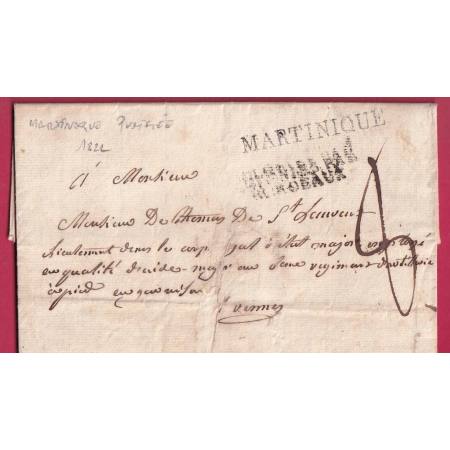 MARTINIQUE PURIFIÉE
1822
MARTINIQUE
COLONIES PAR
BORDEAUX
à Monsieur
Monsieur De Thomas De St Sauveur
Lieutenant dans le corp Royal d'état major employé
en qualité d'aide major au 6eme regiment d'artillerie
à pied en garnison
à Rennes